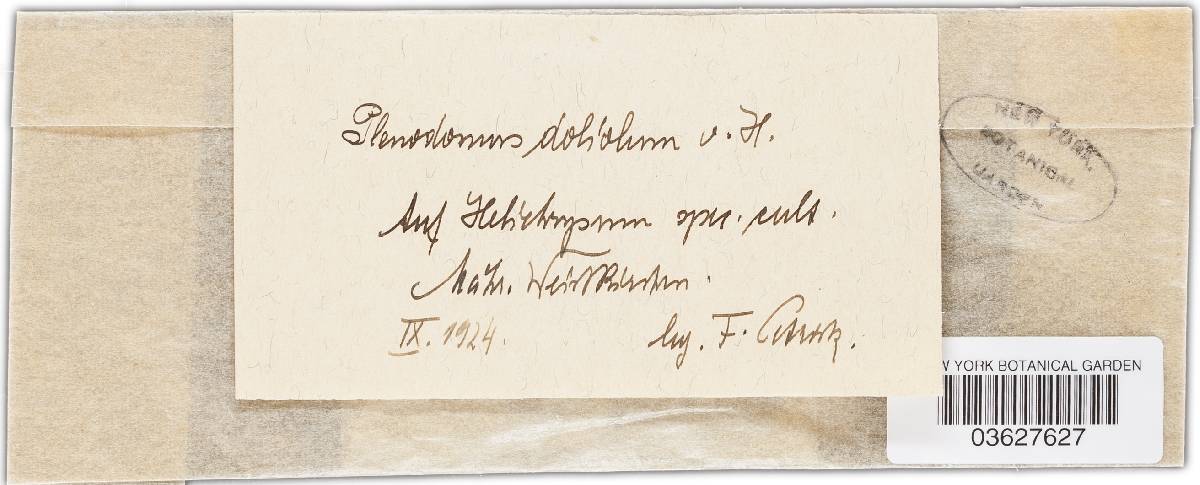 Plenodomus doliolum v. H.
Auf Helichrysum spec. cult.
Mähr. Weisskirchen.
IX. 1924.
leg. F. Petrak.
NEW YORK
BOTANICAL
GARDEN
W YORK BOTANICAL GARDEN
03627627